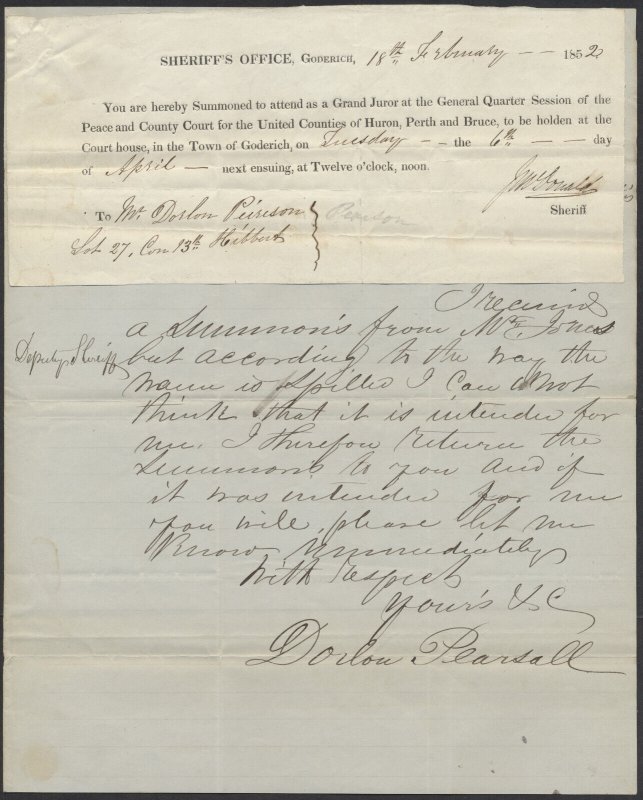 SHERIFF'S OFFICE, GODERICH, 18th February -- 1852
You are hereby Summoned to attend as a Grand Juror at the General Quarter Session of the
Peace and County Court for the United Counties of Huron, Perth and Bruce, to be holden at the
Court house, in the Town of Goderich, on Tuesday -- the 6th -- day
of April - next ensuing, at Twelve o'clock, noon.
JMcDonald
Sheriff
To Mr. Dorlon Peireson
Pearson
Lot 27, Con 13th Hibbert
I received
a Summon's from Mr. Jones
Deputy Sheriff
but according to the way the
name is Spilled I Can not
think that it is intended for
me. I therefore return the
Summons to you and if
it was intended for me
you will please let me
Know immediately
With respect
Your's &C
Dorlon Pearsall